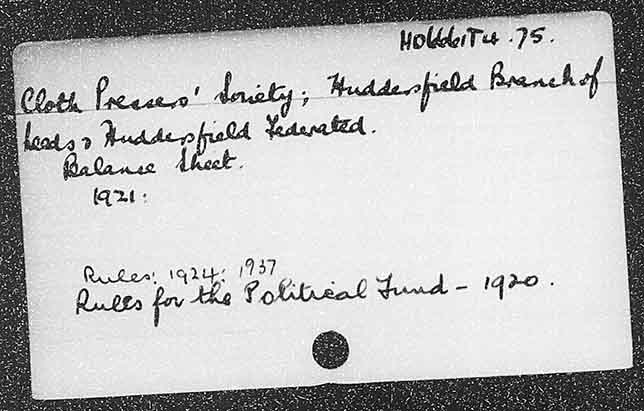 75.
Cloth Pressers' Society; Huddersfield Branch of
Leeds & Huddersfield Federated.
Balance Sheet.
1921:
Rules: 1924: 1937
Rules for the Political Fund - 1920.